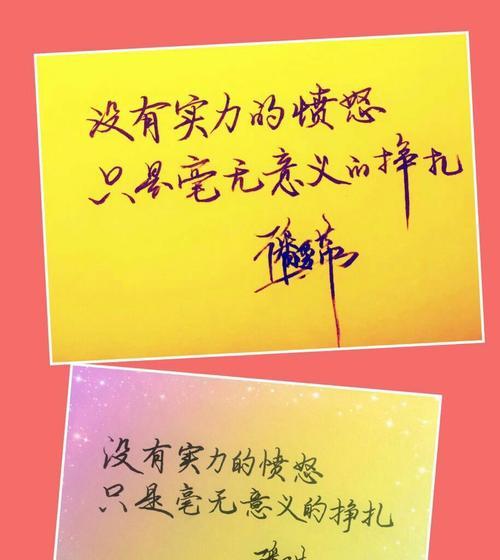 没有实力的愤怒
只是毫无意义的挣扎
没有实力的愤怒
只是毫无意义的挣扎